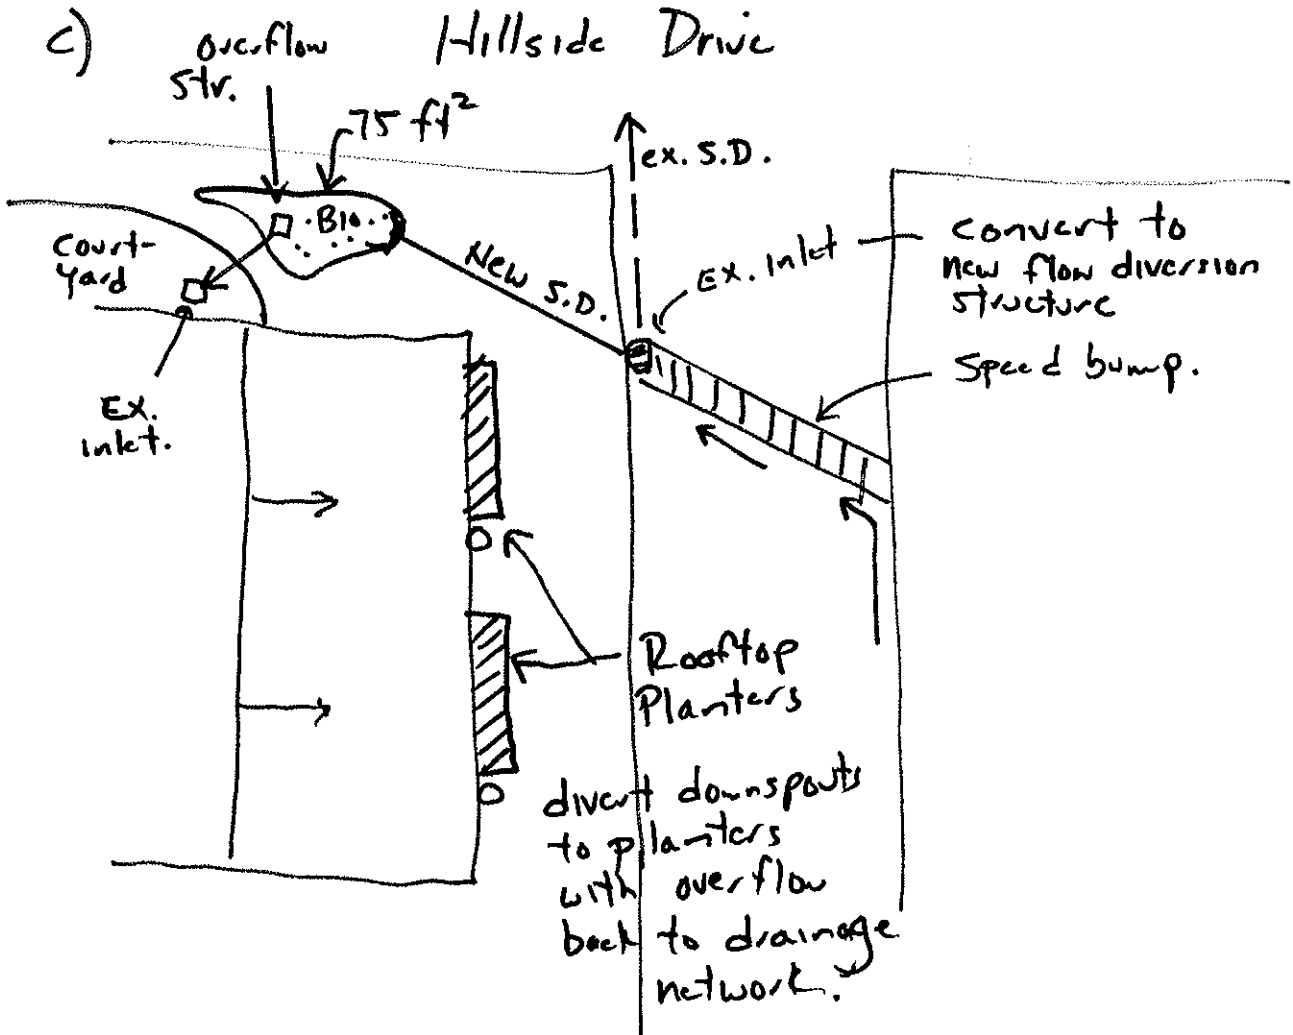 c)
Hillside Drive
overflow
str.
75 ft²
ex. S.D.
Bio.
Court-
yard
New S.D.
Ex. Inlet
convert to
new flow diversion
structure
Speed bump.
Ex.
inlet.
Rooftop
Planters
divert downspouts
to planters
with overflow
back to drainage
network.